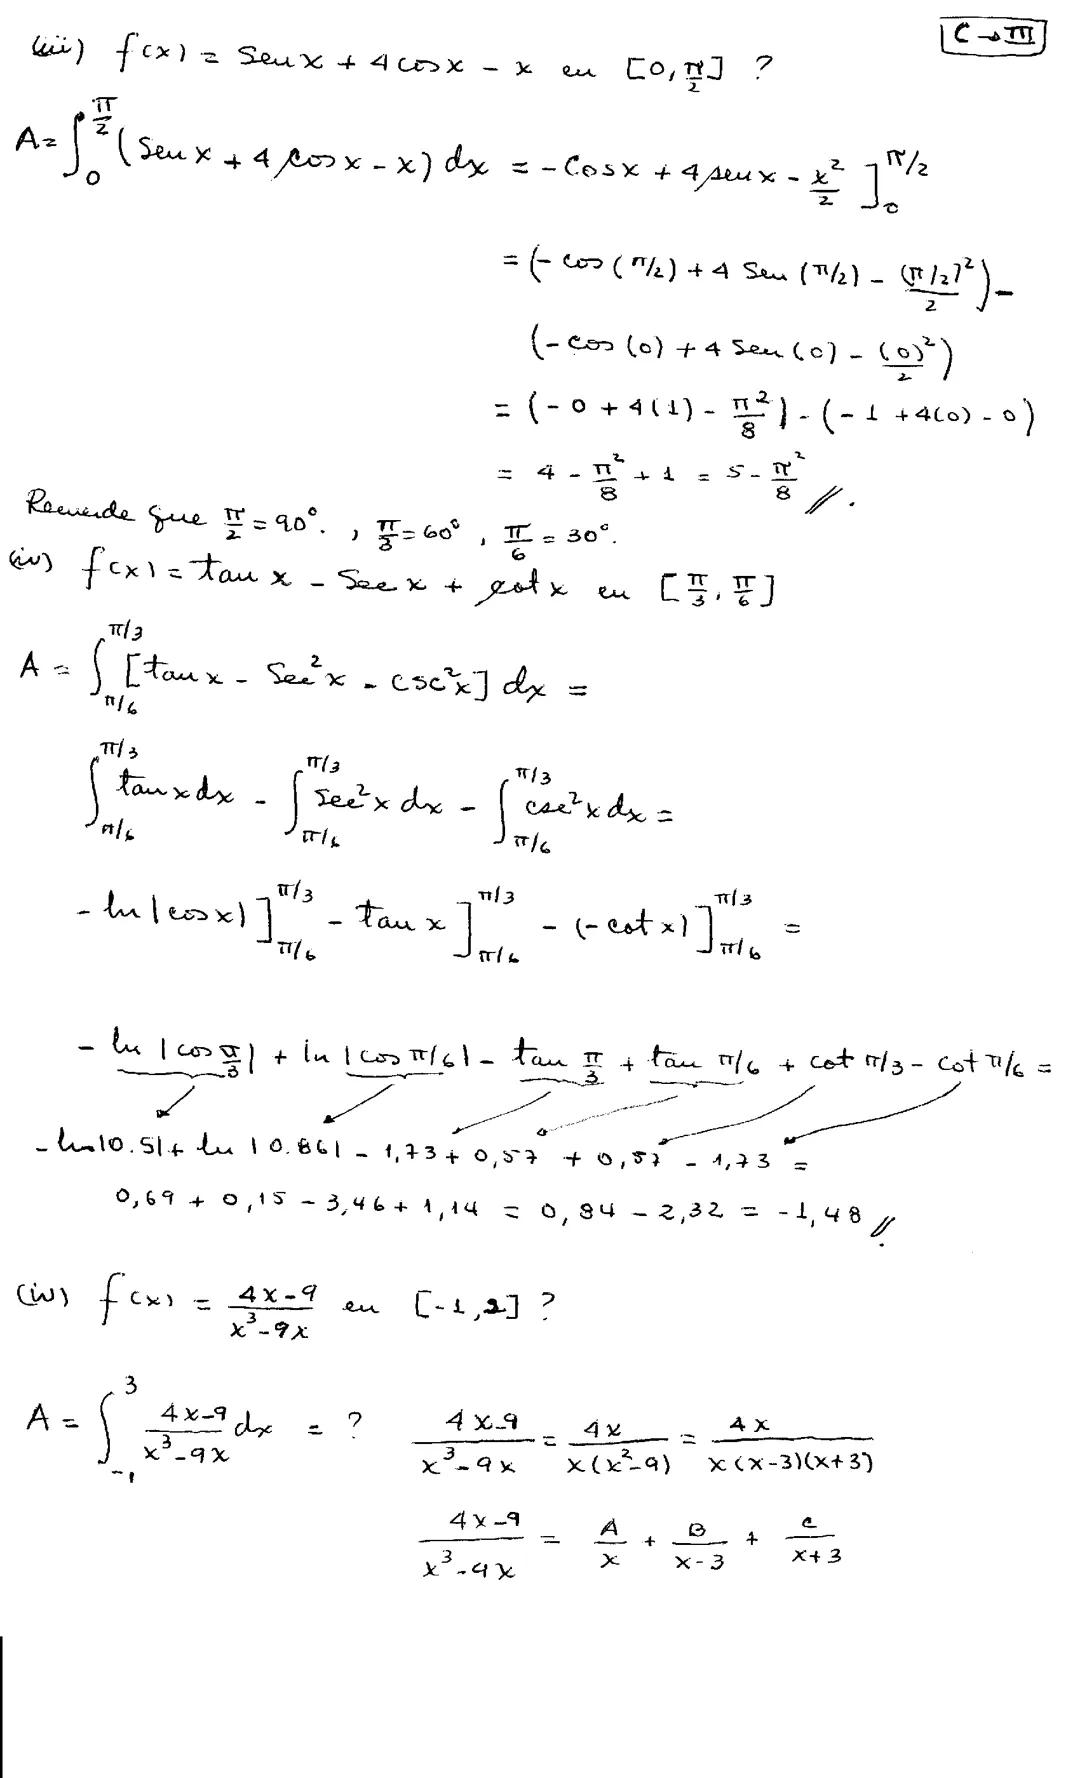 C → III
(iii) f(x) = Sen x + 4 cos x - x en [0, π/2] ?
A = ∫_0^{π/2} (Sen x + 4 cos x - x) dx = - Cos x + 4 sen x - x²/2 ]_0^{π/2}
= (- cos (π/2) + 4 Sen (π/2) - (π/2)²/2) -
(- cos (0) + 4 Sen (0) - (0)²/2)
= (- 0 + 4(1) - π²/8) - (- 1 + 4(0) - 0)
= 4 - π²/8 + 1 = 5 - π²/8 //.
Recuerde que π/2 = 90°. , π/3 = 60° , π/6 = 30°.
(iv) f(x) = tan x - Sec x + cot x en [π/3, π/6]
A = ∫_{π/6}^{π/3} [tan x - Sec² x - csc² x] dx =
∫_{π/6}^{π/3} tan x dx - ∫_{π/6}^{π/3} sec² x dx - ∫_{π/6}^{π/3} csc² x dx =
- ln |cos x| ]_{π/6}^{π/3} - tan x ]_{π/6}^{π/3} - (- cot x) ]_{π/6}^{π/3} =
- ln |cos π/3| + ln |cos π/6| - tan π/3 + tan π/6 + cot π/3 - cot π/6 =
- ln |0.5| + ln |0.86| - 1,73 + 0,57 + 0,57 - 1,73 =
0,69 + 0,15 - 3,46 + 1,14 = 0,84 - 2,32 = -1,48 //.
(iv) f(x) = (4x-9)/(x³-9x) en [-1, 2] ?
A = ∫_{-1}^{3} (4x-9)/(x³-9x) dx = ? (4x-9)/(x³-9x) = 4x/(x(x²-9)) = 4x/(x(x-3)(x+3))
(4x-9)/(x³-9x) = A/x + B/(x-3) + C/(x+3)